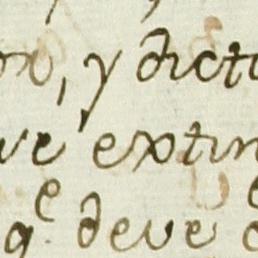 , y dict
ve extin
q.e deve